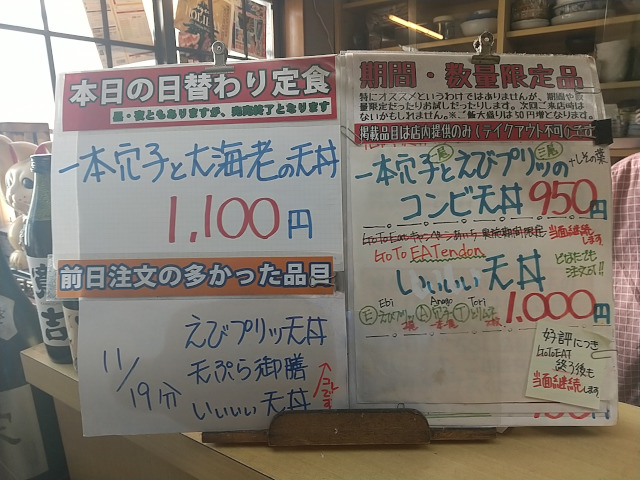 本日の日替わり定食
昼・夜ともありますが、完売終了となります
一本穴子と大海老の天丼
1,100円
前日注文の多かった品目
11/19分
えびプリッ天丼
天ぷら御膳
いいいい天丼
コレです
期間・数量限定品
特にオススメというわけではありませんが、期間や数
量限定だったりお試しだったりします。次回ご来店時は
ないかもしれません。※ご飯大盛りは50円増となります。
掲載品目は店内提供のみ(テイクアウト不可)です
一本穴子とえびプリッの
コンビ天丼 950円
+しその葉
当面継続します
GoTo EATendon
いいいい天丼
1,000円
Ebi
Anago
Tori
E
A
T
好評につき
GoToEAT
終了後も
当面継続します